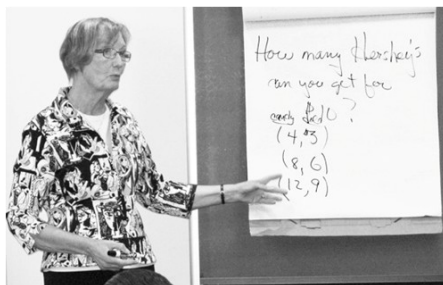 How many Hershey's
can you get for
$10?
(4, $3)
(8, 6)
(12, 9)